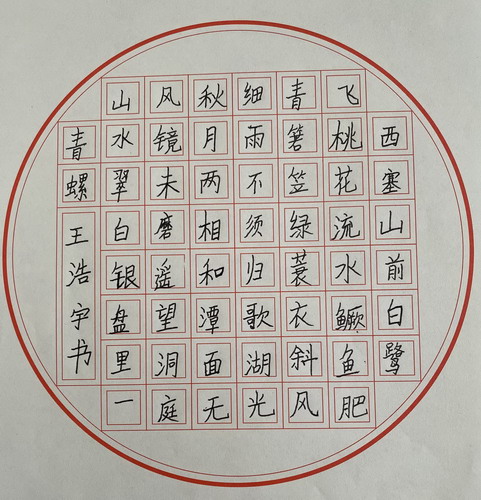 西塞山前白鹭
飞桃花流水鳜鱼肥
青箬笠绿蓑衣斜风
细雨不须归歌湖光
秋月两相和潭面无
风镜未磨遥望洞庭
山水翠白银盘里一
青螺
王浩宇书